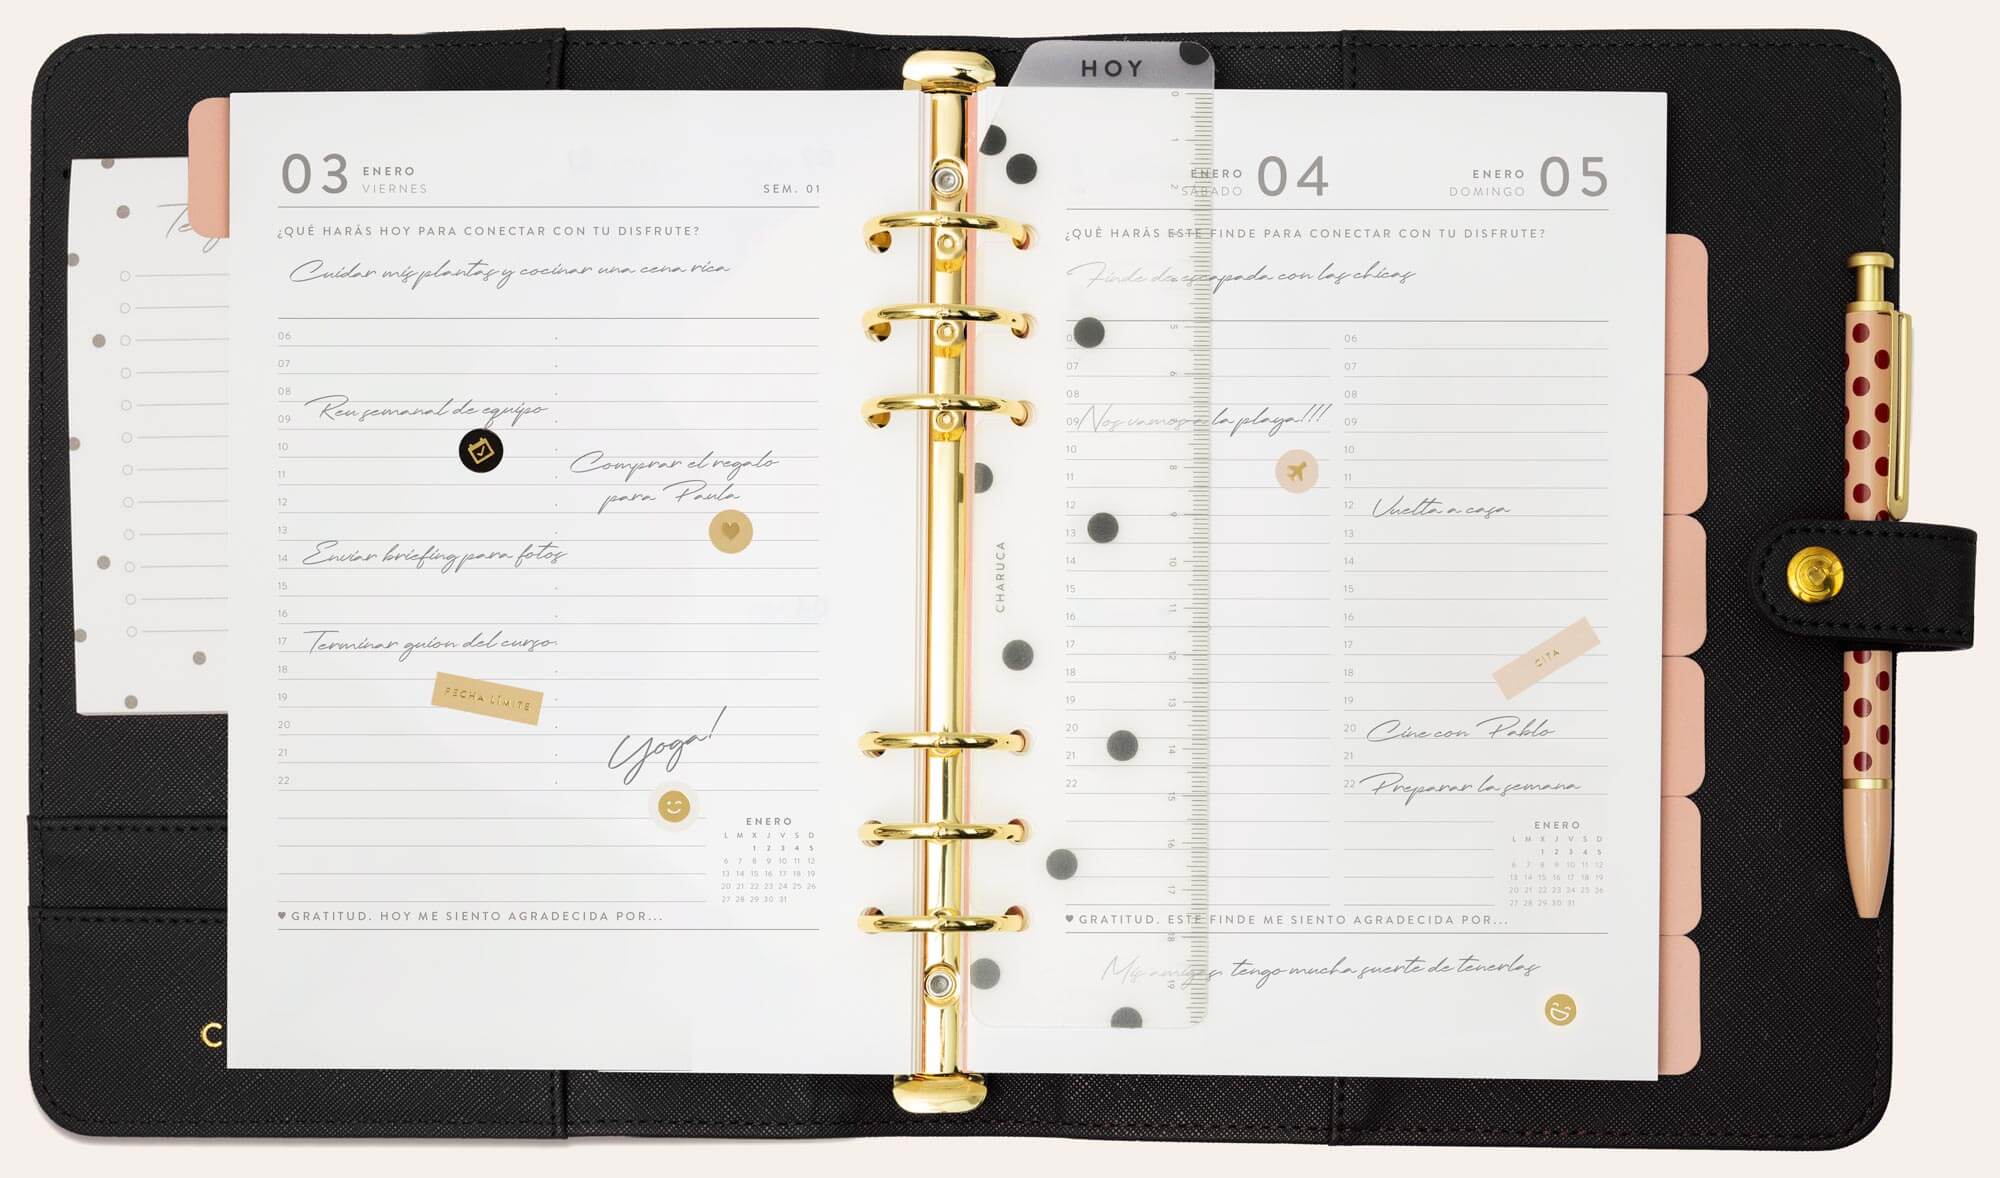 Te
C
03 ENERO
VIERNES
SEM. 01
¿QUÉ HARÁS HOY PARA CONECTAR CON TU DISFRUTE?
Cuidar mis plantas y cocinar una cena rica
06
07
08
Reu semanal de equipo
09
10
Comprar el regalo
11
para Paula
12
13
Enviar briefing para fotos
14
15
16
Terminar guion del curso
17
18
FECHA LÍMITE
19
20
Yoga!
21
22
ENERO
L M X J V S D
1 2 3 4 5
6 7 8 9 10 11 12
13 14 15 16 17 18 19
20 21 22 23 24 25 26
27 28 29 30 31
GRATITUD. HOY ME SIENTO AGRADECIDA POR...
HOY
CHARUCA
0
1
2
5
6
8
9
10
11
12
13
14
15
16
17
18
19
ENERO 04
SÁBADO
ENERO 05
DOMINGO
¿QUÉ HARÁS ESTE FINDE PARA CONECTAR CON TU DISFRUTE?
Finde de escapada con las chicas
07
08
09 Nos vamos a la playa!!!
10
11
12
13
14
15
16
17
18
19
20
21
22
06
07
08
09
10
11
12 Vuelta a casa
13
14
15
16
17
CITA
18
19
20 Cine con Pablo
21
22 Preparar la semana
ENERO
L M X J V S D
1 2 3 4 5
6 7 8 9 10 11 12
13 14 15 16 17 18 19
20 21 22 23 24 25 26
27 28 29 30 31
GRATITUD. ESTE FINDE ME SIENTO AGRADECIDA POR...
Mis amigas, tengo mucha suerte de tenerlas